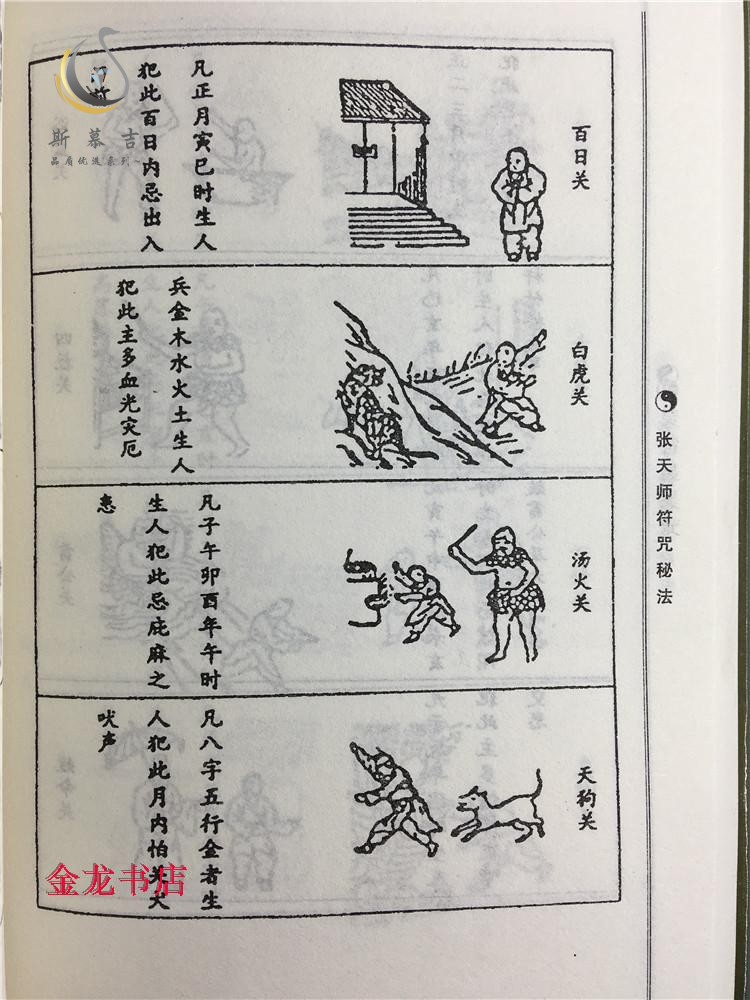 百日关
凡正月寅巳时生人
犯此百日内忌出入
白虎关
兵金木水火土生人
犯此主多血光灾厄
汤火关
凡子午卯酉年午时
生人犯此忌庇麻之
患
天狗关
凡八字五行金者生
人犯此月内怕关犬
吠声
张天师符咒秘法
斯慕吉
品质优选系列
金龙书店